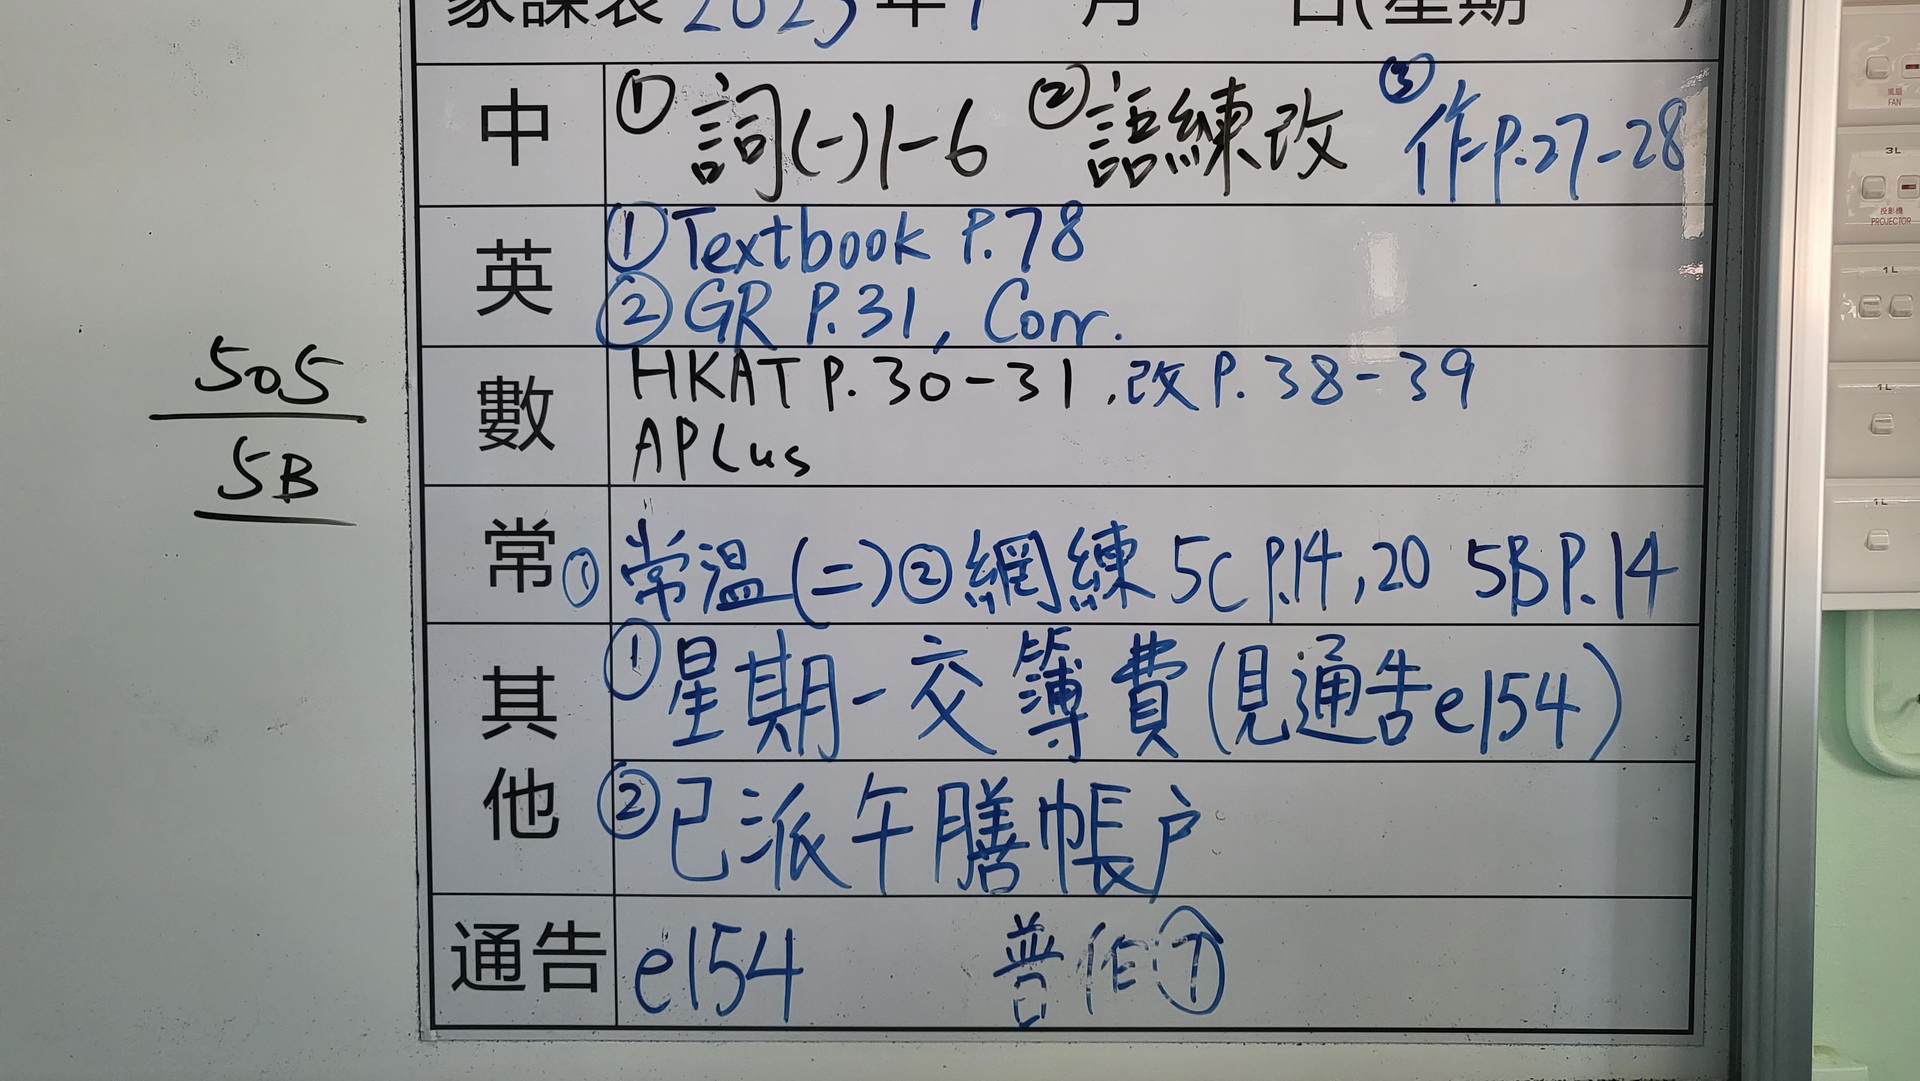 家課表 2023年1月 日(星期 )
中 ① 詞(一)1-6 ② 語練改 ③ 作P.27-28
英 ① Textbook P.78
② GR P.31, Corr.
數 HKAT P.30-31,改P.38-39
APLus
常 ① 常溫(二) ② 網練 5C P.14,20 5B P.14
其他 ① 星期一交簿費(見通告e154)
② 已派午膳帳户
通告 e154 普作⑦
505
5B
風扇
FAN
3L
投影機
PROJECTOR
1L
1L
1L